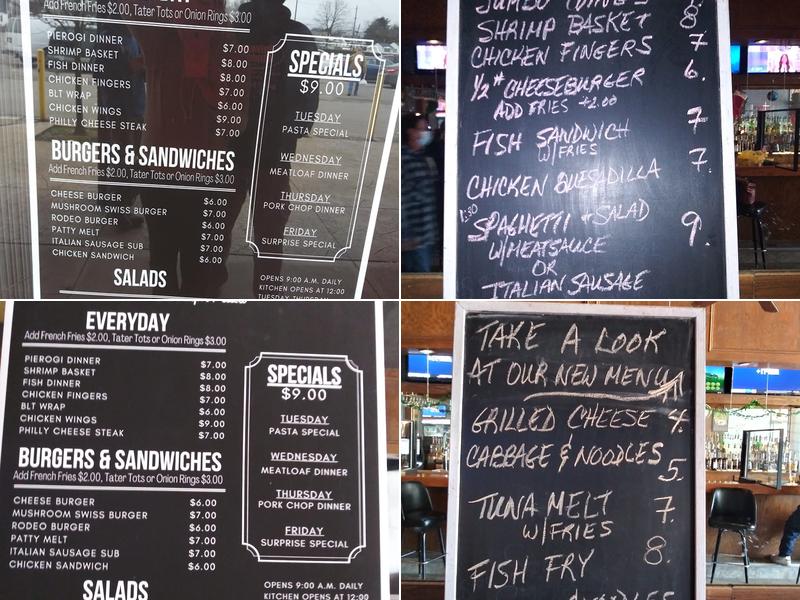 Add French Fries $2.00, Tater Tots or Onion Rings $3.00
PIEROGI DINNER $7.00
SHRIMP BASKET $8.00
FISH DINNER $8.00
CHICKEN FINGERS $7.00
BLT WRAP $6.00
CHICKEN WINGS $9.00
PHILLY CHEESE STEAK $7.00
BURGERS & SANDWICHES
Add French Fries $2.00, Tater Tots or Onion Rings $3.00
CHEESE BURGER $6.00
MUSHROOM SWISS BURGER $7.00
RODEO BURGER $6.00
PATTY MELT $7.00
ITALIAN SAUSAGE SUB $7.00
CHICKEN SANDWICH $6.00
SALADS
SPECIALS
$9.00
TUESDAY
PASTA SPECIAL
WEDNESDAY
MEATLOAF DINNER
THURSDAY
PORK CHOP DINNER
FRIDAY
SURPRISE SPECIAL
OPENS 9:00 A.M. DAILY
KITCHEN OPENS AT 12:00
JUMBO WINGS
SHRIMP BASKET 8
CHICKEN FINGERS 7
1/2# CHEESEBURGER 6.
ADD FRIES +2.00
FISH SANDWICH 7
W/FRIES
CHICKEN QUESADILLA 7.
SPAGHETTI + SALAD 9.
W/MEATSAUCE
OR
ITALIAN SAUSAGE
EVERYDAY
Add French Fries $2.00, Tater Tots or Onion Rings $3.00
PIEROGI DINNER $7.00
SHRIMP BASKET $8.00
FISH DINNER $8.00
CHICKEN FINGERS $7.00
BLT WRAP $6.00
CHICKEN WINGS $9.00
PHILLY CHEESE STEAK $7.00
BURGERS & SANDWICHES
Add French Fries $2.00, Tater Tots or Onion Rings $3.00
CHEESE BURGER $6.00
MUSHROOM SWISS BURGER $7.00
RODEO BURGER $6.00
PATTY MELT $7.00
ITALIAN SAUSAGE SUB $7.00
CHICKEN SANDWICH $6.00
SALADS
SPECIALS
$9.00
TUESDAY
PASTA SPECIAL
WEDNESDAY
MEATLOAF DINNER
THURSDAY
PORK CHOP DINNER
FRIDAY
SURPRISE SPECIAL
OPENS 9:00 A.M. DAILY
KITCHEN OPENS AT 12:00
TAKE A LOOK
AT OUR NEW MENU
GRILLED CHEESE 4.
CABBAGE & NOODLES 5.
TUNA MELT 7.
W/FRIES
FISH FRY 8.